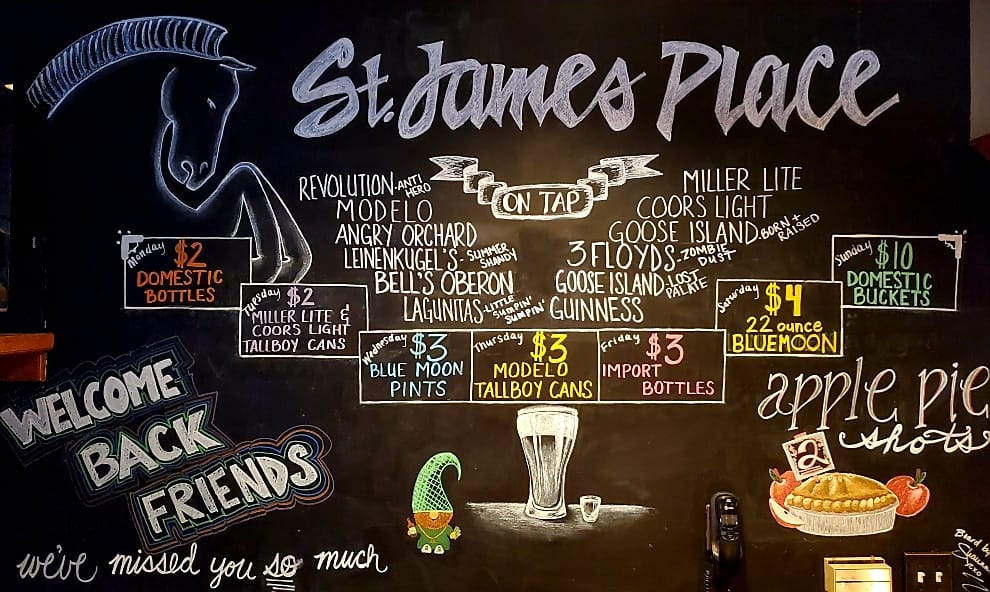 St. James Place
ON TAP
REVOLUTION-ANTI HERO
MODELO
ANGRY ORCHARD
LEINENKUGEL'S-SUMMER SHANDY
BELL'S OBERON
LAGUNITAS-LITTLE SUMPIN' SUMPIN'
MILLER LITE
COORS LIGHT
GOOSE ISLAND-BORN + RAISED
3 FLOYDS-ZOMBIE DUST
GOOSE ISLAND-LOST PALATE
GUINNESS
Monday
$2
DOMESTIC
BOTTLES
Tuesday
$2
MILLER LITE &
COORS LIGHT
TALLBOY CANS
Wednesday
$3
BLUE MOON
PINTS
Thursday
$3
MODELO
TALLBOY CANS
Friday
$3
IMPORT
BOTTLES
Saturday
$4
22 ounce
BLUEMOON
Sunday
$10
DOMESTIC
BUCKETS
WELCOME
BACK
FRIENDS
we've missed you so much
apple pie
shots
$2
Board by